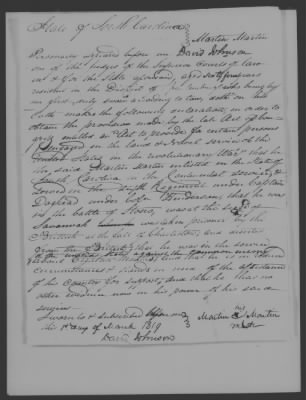 State of South Carolina
Martin Martin
Personally appeared before me David Johnson
one of the Judges of the Superior Courts of Law
& for the State aforesaid,
resident in the District of being by
me first duly sworn according to law, doth on his
oath make the following declaration, in order to
obtain the provision made by the late Act of Con-
gress entitled an Act to provide for certain persons
engaged in the land & naval service of the
United States in the revolutionary War, that he
the said Martin Martin enlisted in the State of
South Carolina in the Continental
served in the Regiment under Captain
under Colo Henderson, that he was
in the battle of Stono, was at the of
Savannah was taken prisoner by the
British at the fall of Charleston, and
that he was in the service
of the united states against the common enemy
that he is in reduced
circumstances & stands in need of the assistance
of his country for support, and that he has no
other evidence now in his power of his said
services
Sworn to & subscribed before me
this 1st day of March 1819
his
Martin Martin
mark
David Johnson